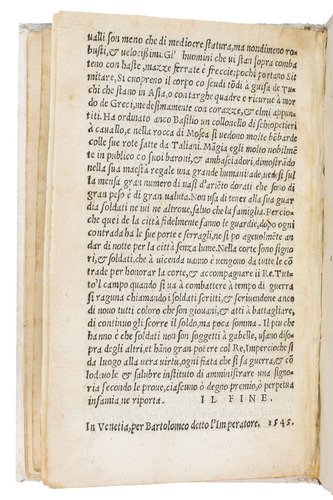 ualli son meno che di mediocre statura, ma nondimeno ro-
busti, & velocissimi. Gl' huomini che ui stan sopra comba
teno con haste, mazze ferrate & freccie; pochi portano Si
mitare, Si cuopreno il corpo co scudi tōdi à guisa de Tur
chi che stano in Asia, o con targhe quadre e ricurue à mo
do de Greci, medesimamente con corazze, & elmi appun
titi. Ha ordinato anco Basilio un collonello di schioppetieri
à cauallo, e nella rocca di Mosca si uedono molte bōbarde
colle sue rote fatte da Taliani. Māgia egli molto nobilmē
te in publico co suoi baroni, & ambasciadori, dimostrādo
nella sua maestà regale una grande humanitade, uedesi sul
la mensa gran numero di uasi d'ariēto dorati che sono di
gran peso è di gran ualuta. Non usa di tener alla sua guar
dia soldati ne iui ne altroue, saluo che la famiglia. Percio
che quei de la città fidelmente fanno le guardie, dopo ogni
contrada ha le sue porte e serragli, ne si po ageuolmēte an
dar di notte per la città senza lume. Nella corte sono signo
ri, & soldati, che à uicenda uanno è uengono da tutte le cō
trade per honorar la corte, & accompagnare il Re. Tut-
to'l campo quando si ua à combattere à tempo di guerra
si raguna chiamando i soldati scritti, & scriuendone anco
di nouo tutti coloro che son giouani, & atti à battagliare,
di continuo gli scorre il soldo, ma poca somma. Il piu che
hanno è che soldati non son soggetti à gabelle, usano diso
pra degli altri, et hāno gran potere col Re, Impercioche si
da luogo alla uera uirtù, ogni fiata che si fa guerra, & cō
lodeuole & salubre instituto di amministrare una signo
ria secondo le proue, ciascuno ò degno premio, ò perpetua
infamia ne riporta. IL FINE.
In Venetia, per Bartolomeo detto l'Imperatore. 1545.